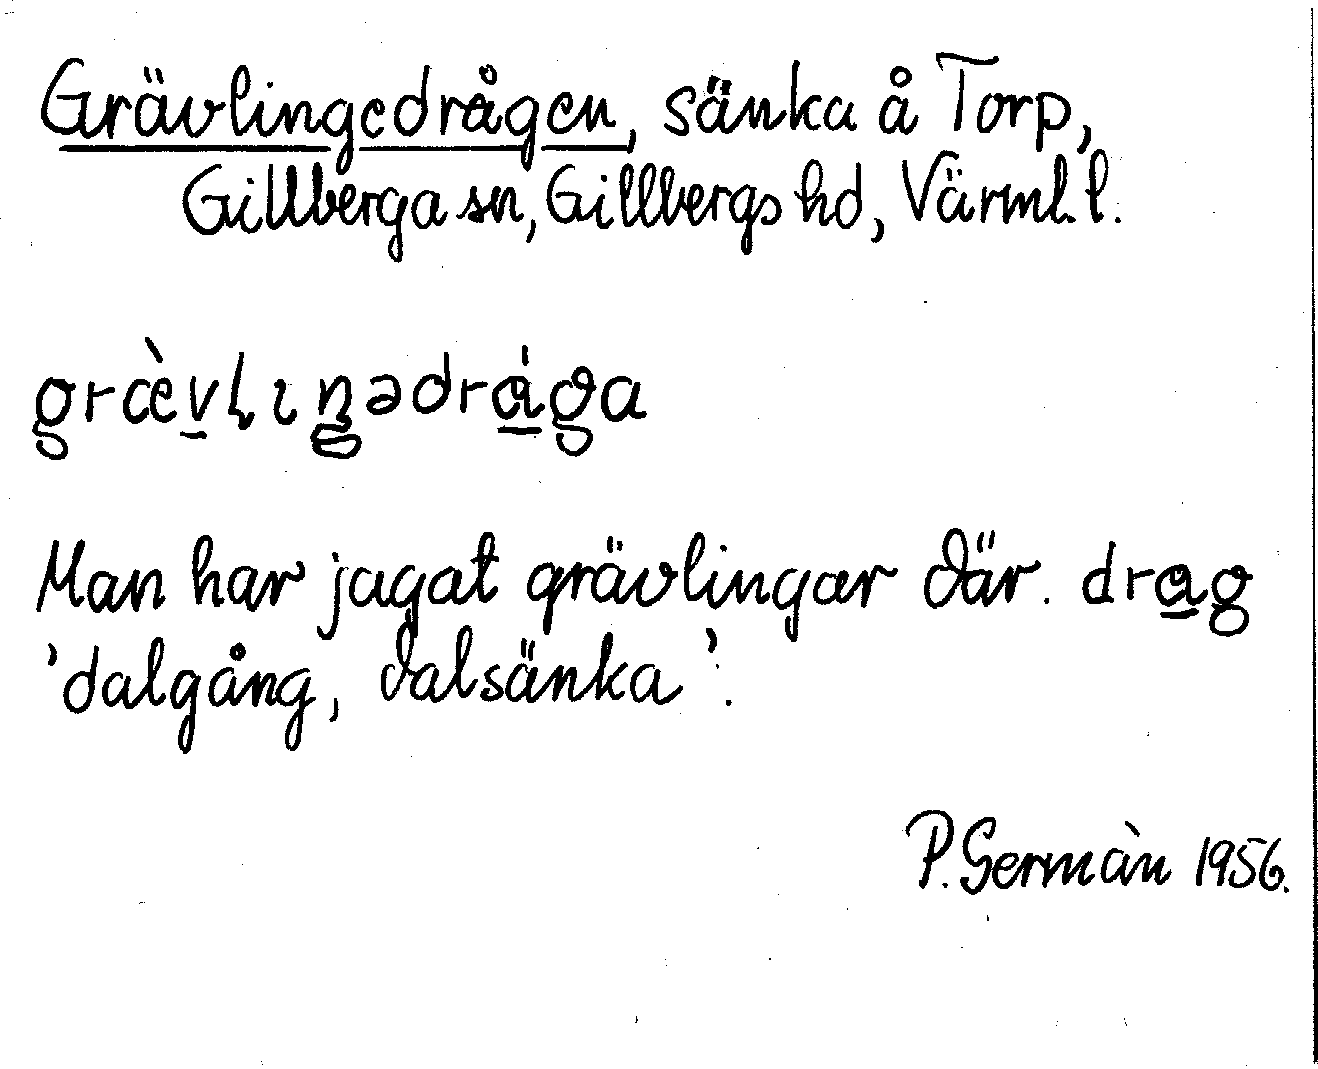 Grävlingedrågen, sänka å Torp,
Gillberga sn, Gillbergs hd, Värml. l.
græ̀v̠ɭɩŋədrά̠ga
Man har jagat grävlingar där. drα̠g
'dalgång, dalsänka'.
P. Germàn 1956.